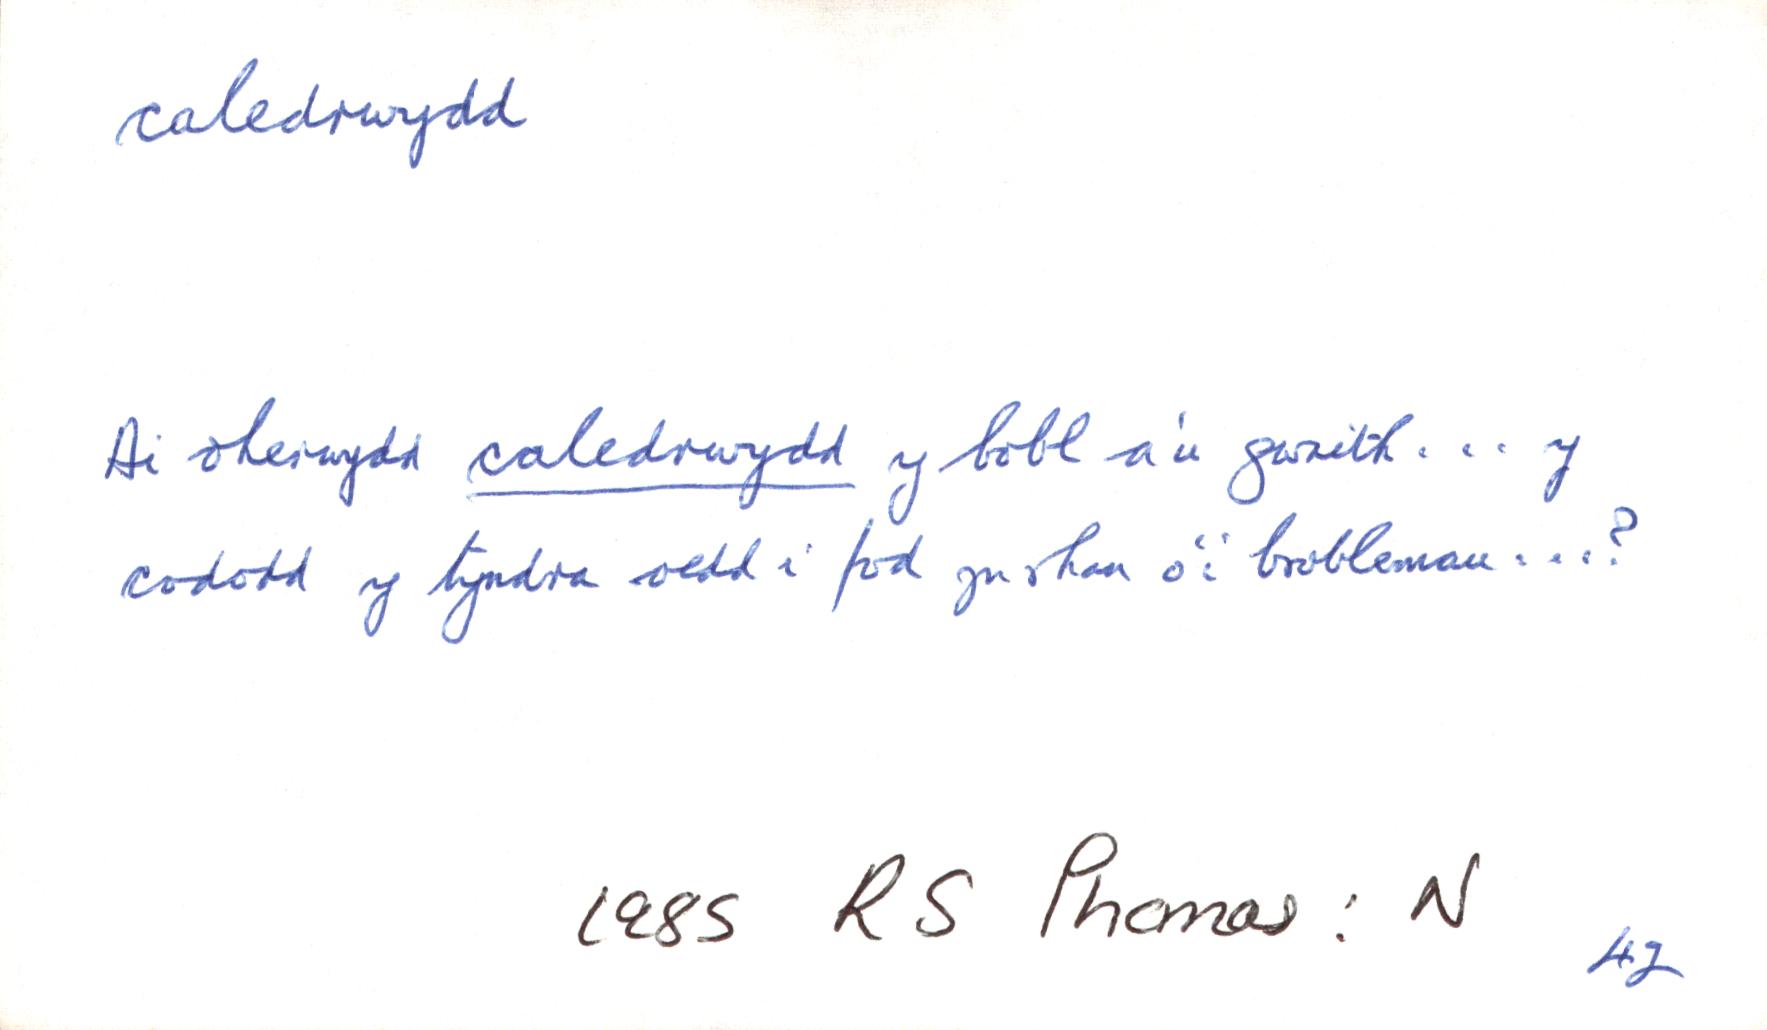 caledrwydd
Ai oherwydd caledrwydd y bobl a'u gwaith . . . y
cododd y tyndra oedd i fod yn rhan o'i broblemau . . . ?
1985 R S Thomas : N
42